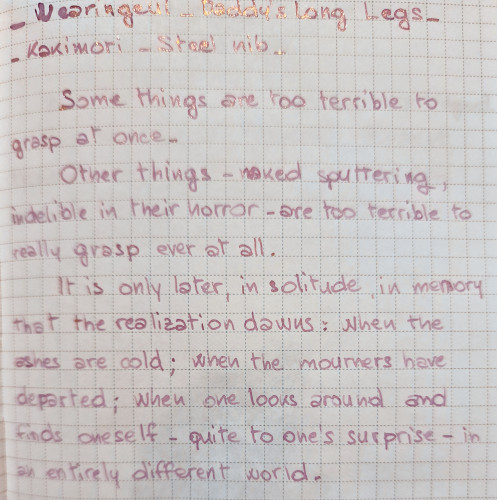 - Wearingeul - Daddy's Long Legs -
- Kakimori - Steel nib -
Some things are too terrible to
grasp at once -
Other things - naked sputtering,
indelible in their horror - are too terrible to
really grasp ever at all.
It is only later, in solitude, in memory
that the realization dawns: when the
ashes are cold; when the mourners have
departed; when one looks around and
finds oneself - quite to one's surprise - in
an entirely different world.